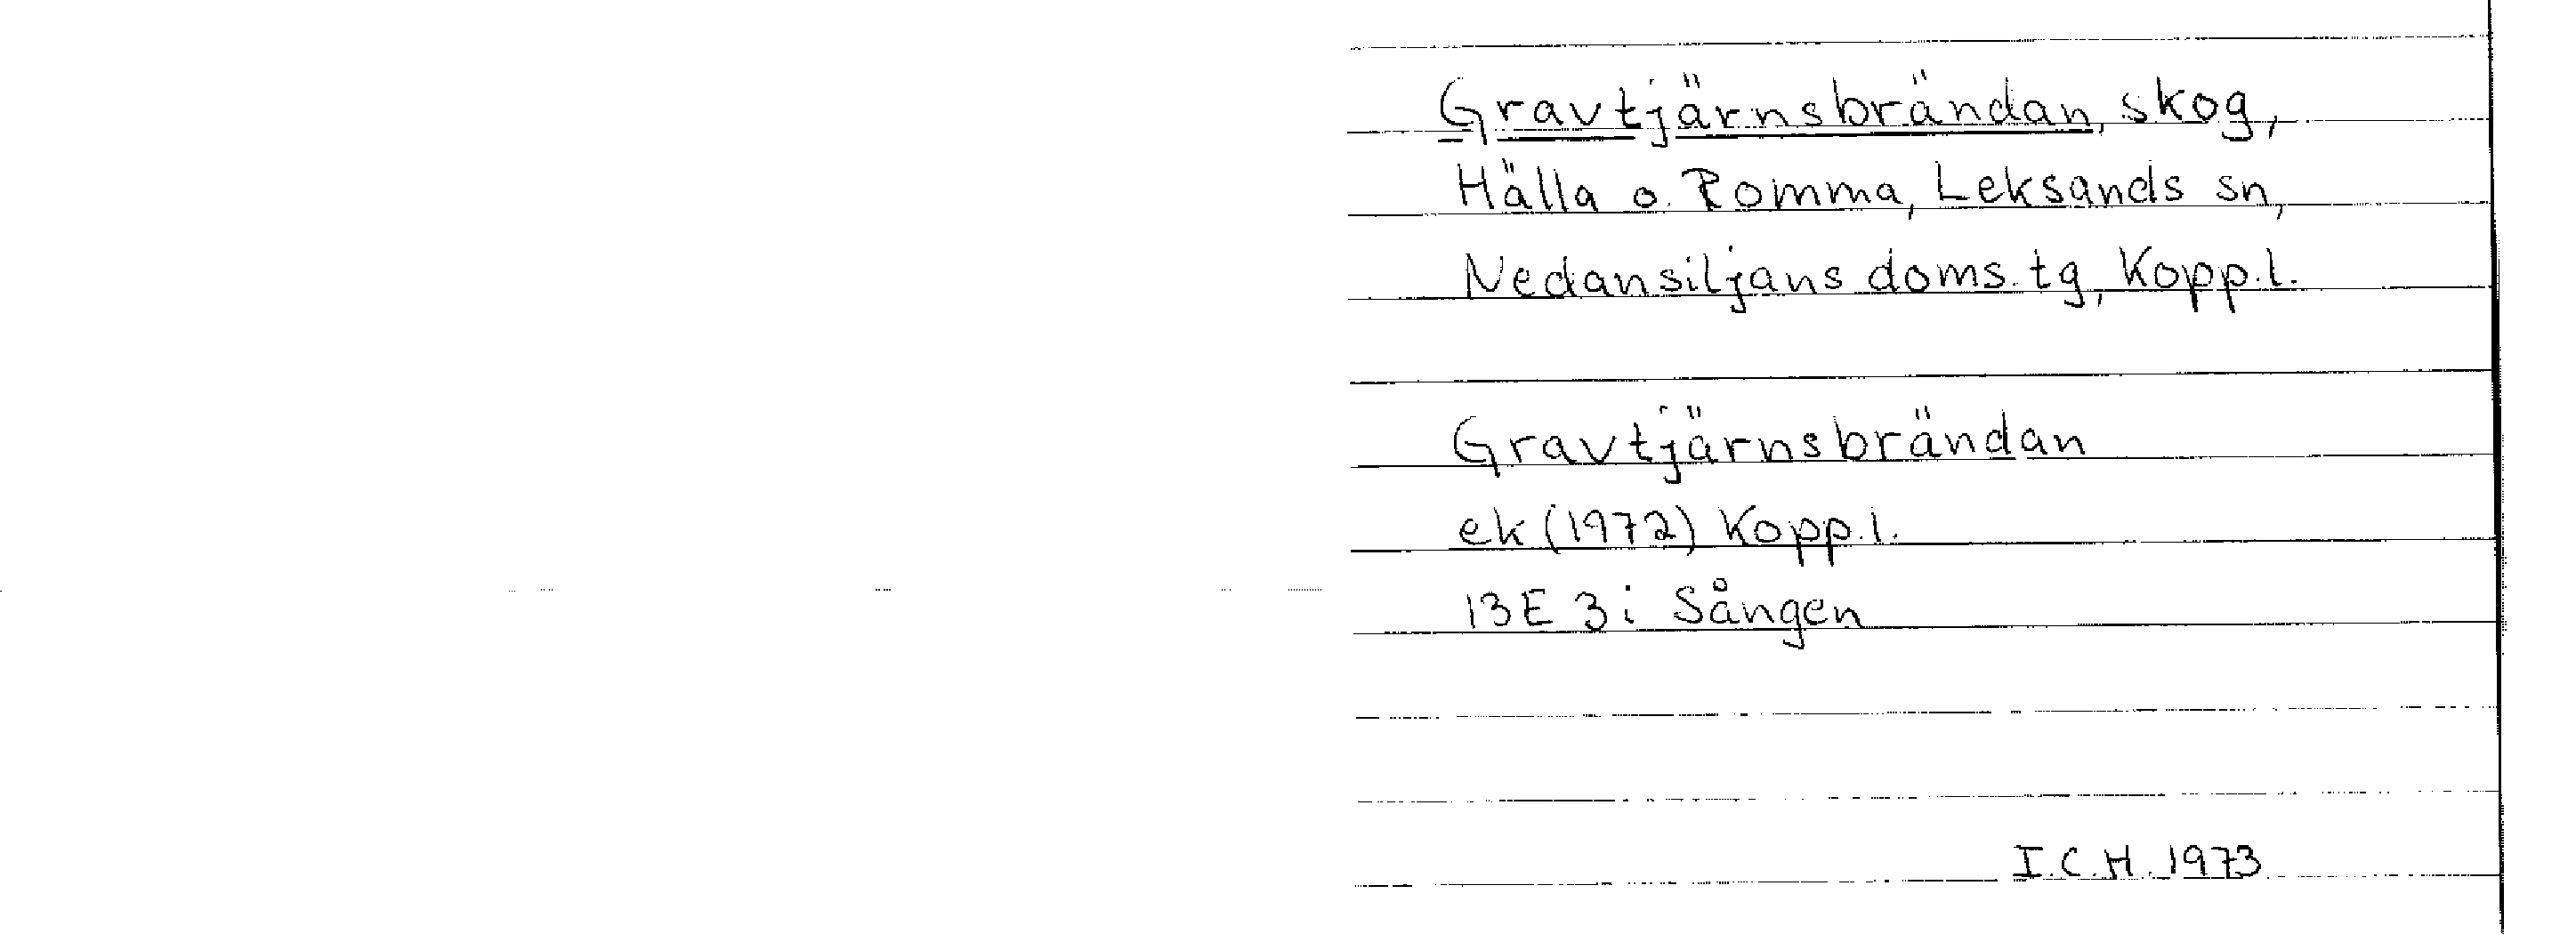 Gravtjärnsbrändan, skog,
Hälla o. Romma, Leksands sn,
Nedansiljans doms. tg, Kopp.l.
Gravtjärnsbrändan
ek (1972) Kopp.l.
13E 3i Sången
I.C.H. 1973